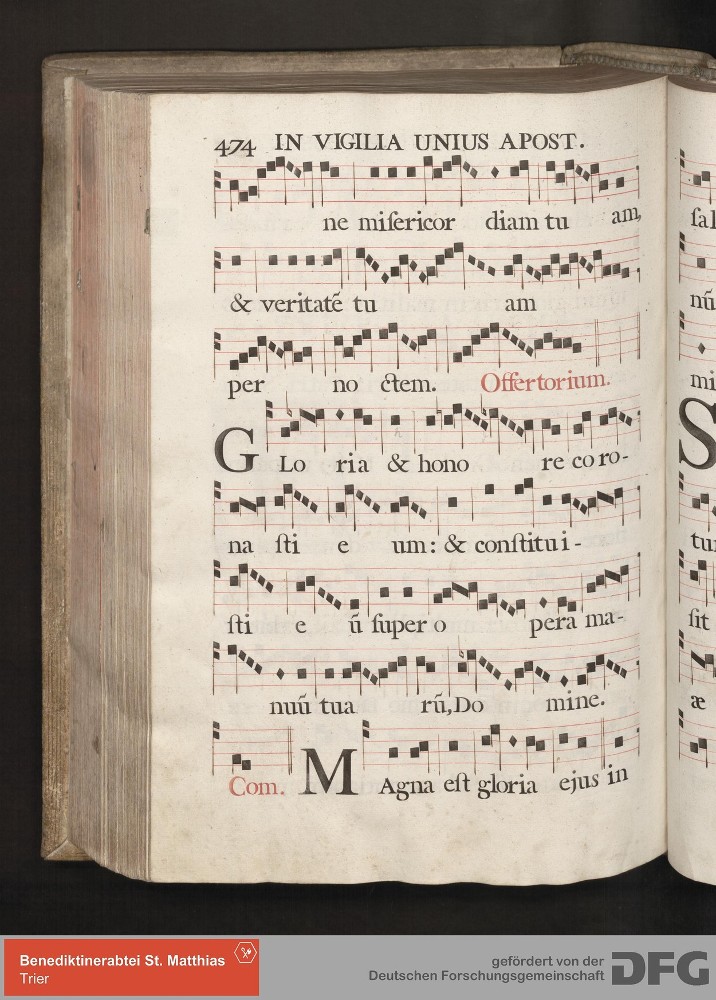 474 IN VIGILIA UNIUS APOST.
ne miſericor diam tu am,
& veritatē tu am
per no ctem. Offertorium.
GLo ria & hono re co ro-
na ſti e um: & conſtitu i-
ſti e ū ſuper o pera ma-
nuū tua rū, Do mine.
Com. MAgna eſt gloria ejus in
ſal
nū
mi
S
tu
ſit
æ
Benediktinerabtei St. Matthias
Trier
gefördert von der
Deutschen Forschungsgemeinschaft
DFG